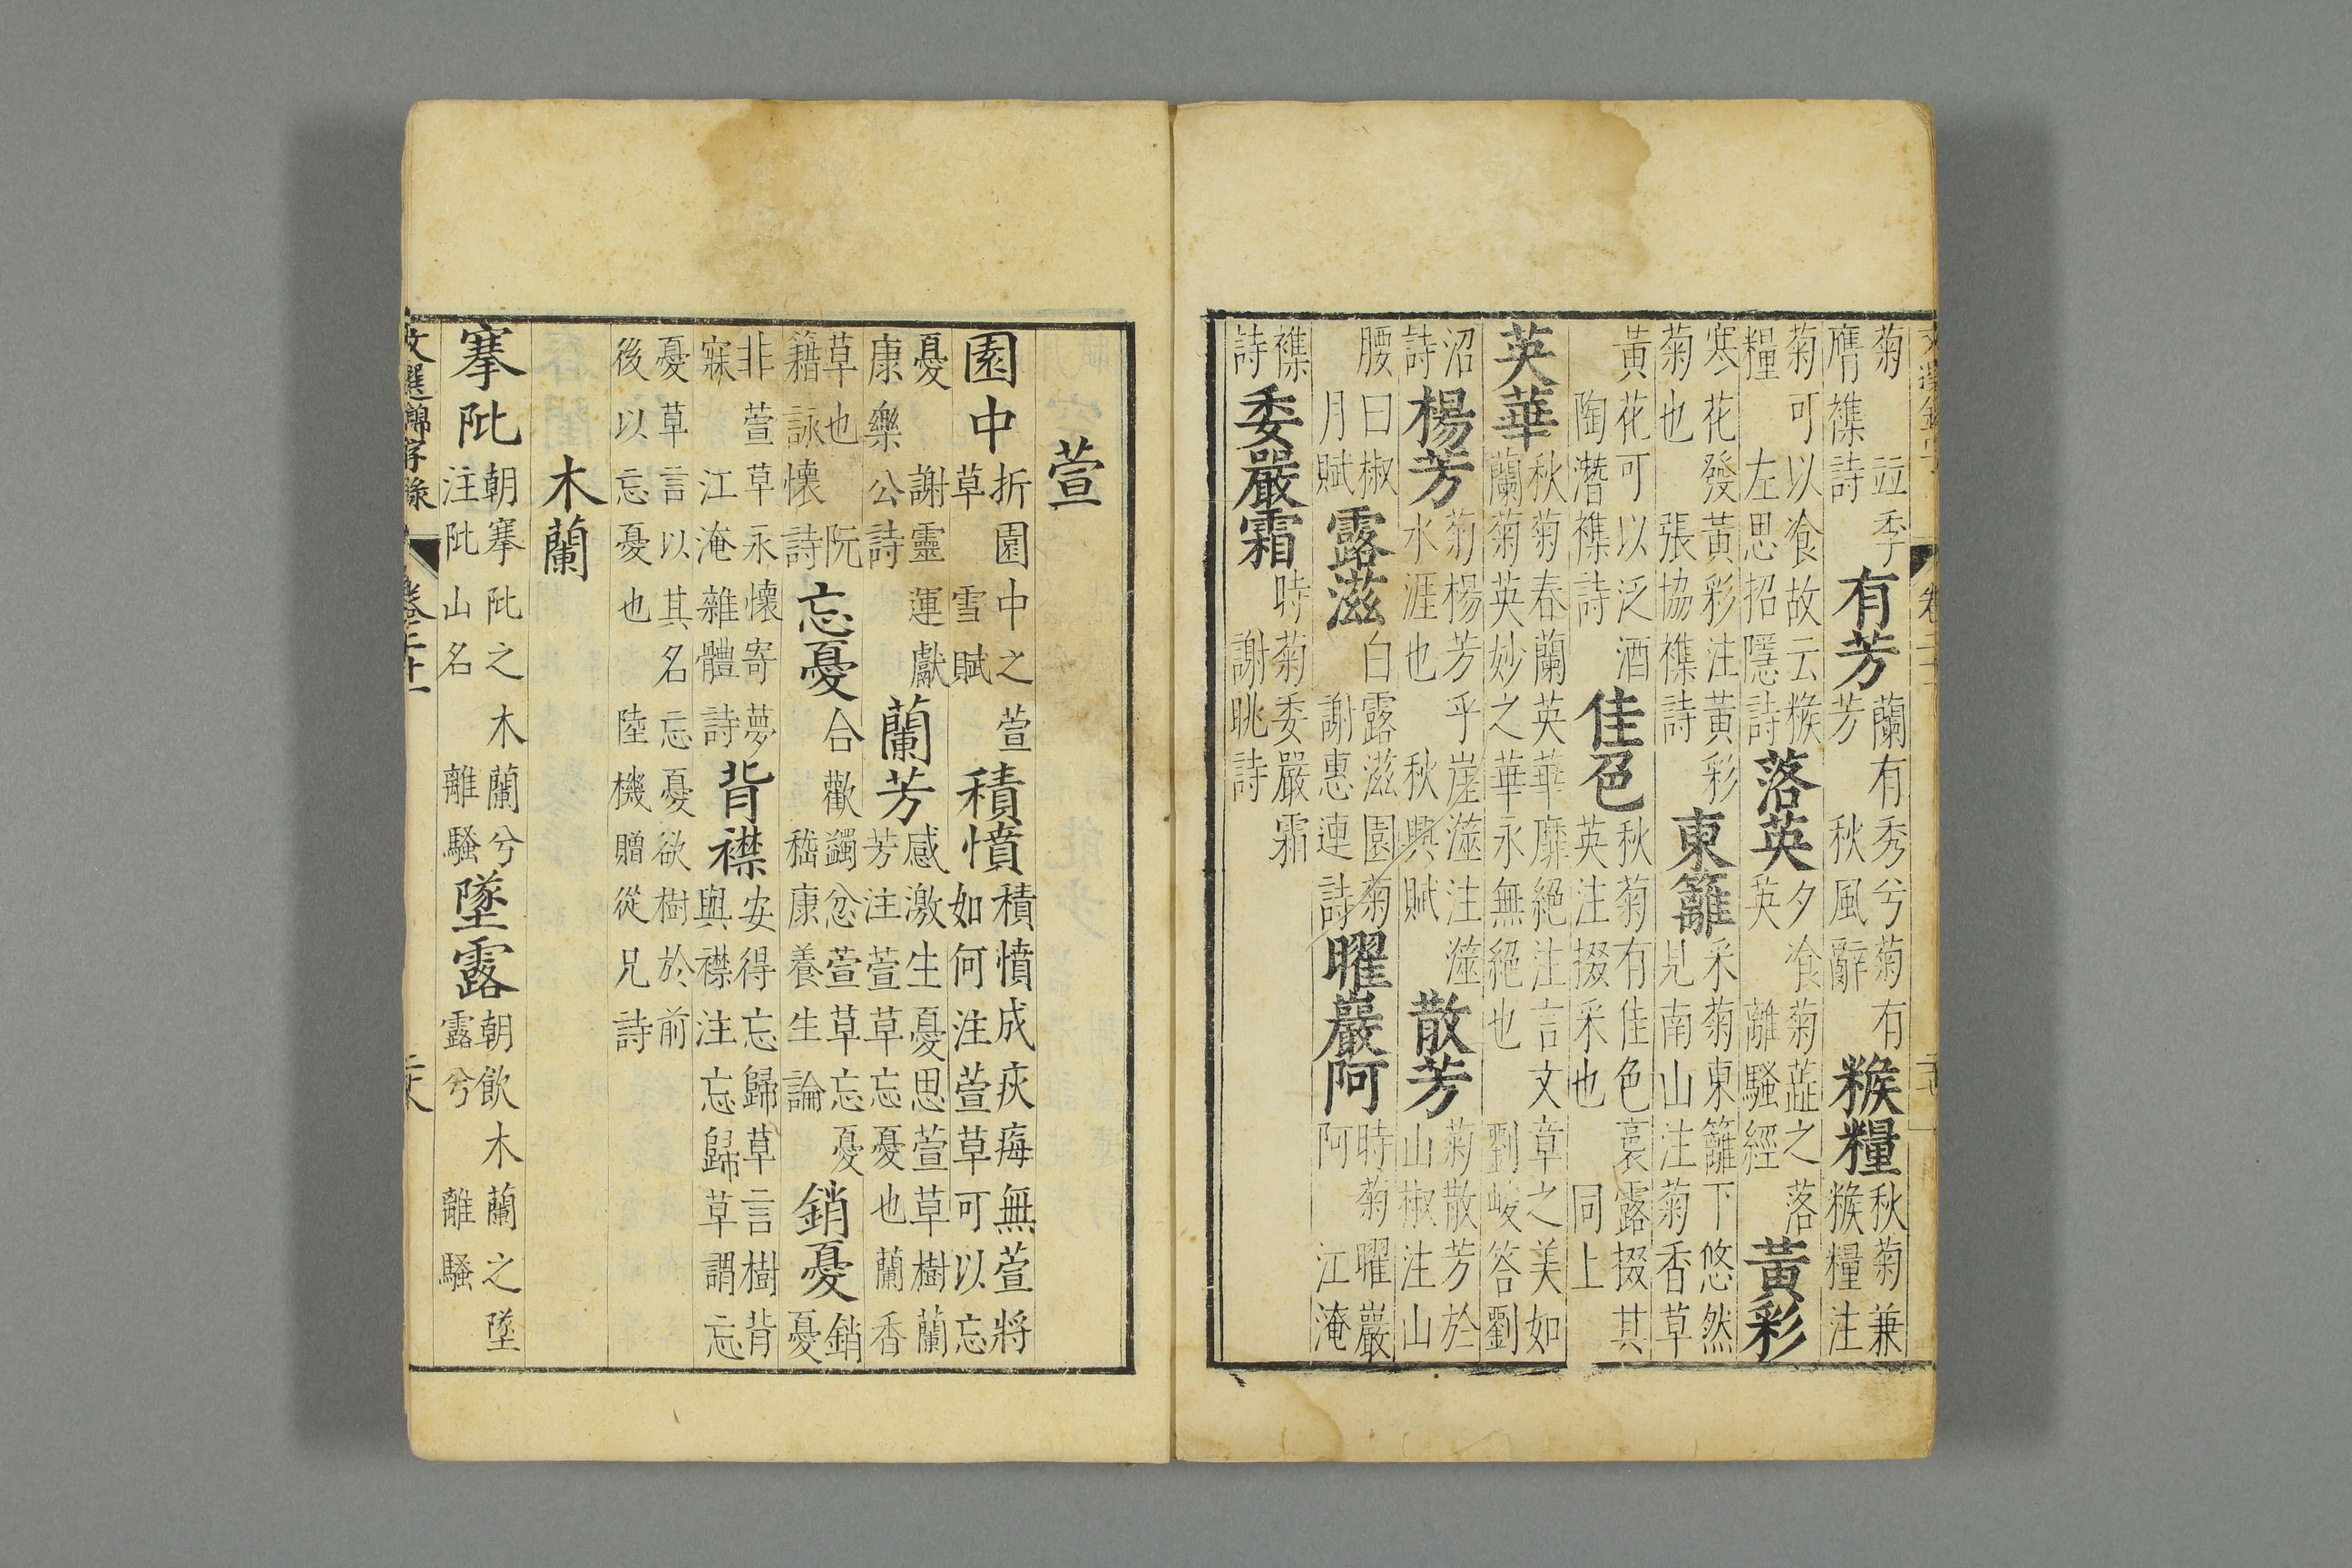 菊竝季膺襍詩有芳蘭有秀兮菊有芳秋風辭糇糧秋菊兼糇糧注
菊可以飡故云糇糧左思招隱詩落英夕飡菊蕋之落英離騷經黃彩
寒花發黃彩注黃彩菊也張協襍詩東籬采菊東籬下悠然見南山注菊香草
黃花可以泛酒陶潛襍詩佳色秋菊有佳色裛露掇其英注掇采也同上
英華秋菊春蘭英華靡絕注言文章之美如蘭菊英妙之華永無絕也劉峻答劉
沼詩楊芳菊楊芳乎崖澨注澨水涯也秋興賦散芳菊散芳於山椒注山
腰曰椒月賦露滋白露滋園菊謝惠連詩曜巖阿時菊曜巖阿江淹
襍詩委嚴霜時菊委嚴霜謝眺詩
萱
園中折園中之萱草雪賦積憤積憤成疢痗無萱將如何注萱草可以忘
憂謝靈運獻康樂公詩蘭芳感激生憂思萱草樹蘭芳注萱草忘憂也蘭香
草也阮籍詠懷詩忘憂合歡蠲忿萱草忘憂嵇康養生論銷憂銷憂
非萱草永懷寄夢寐江淹雜體詩背襟安得忘歸草言樹背與襟注忘歸草謂忘
憂草言以其名忘憂欲樹於前後以忘憂也陸機贈從兄詩
木蘭
搴阰朝搴阰之木蘭兮注阰山名離騷墜露朝飲木蘭之墜露兮離騷
文選錦字錄